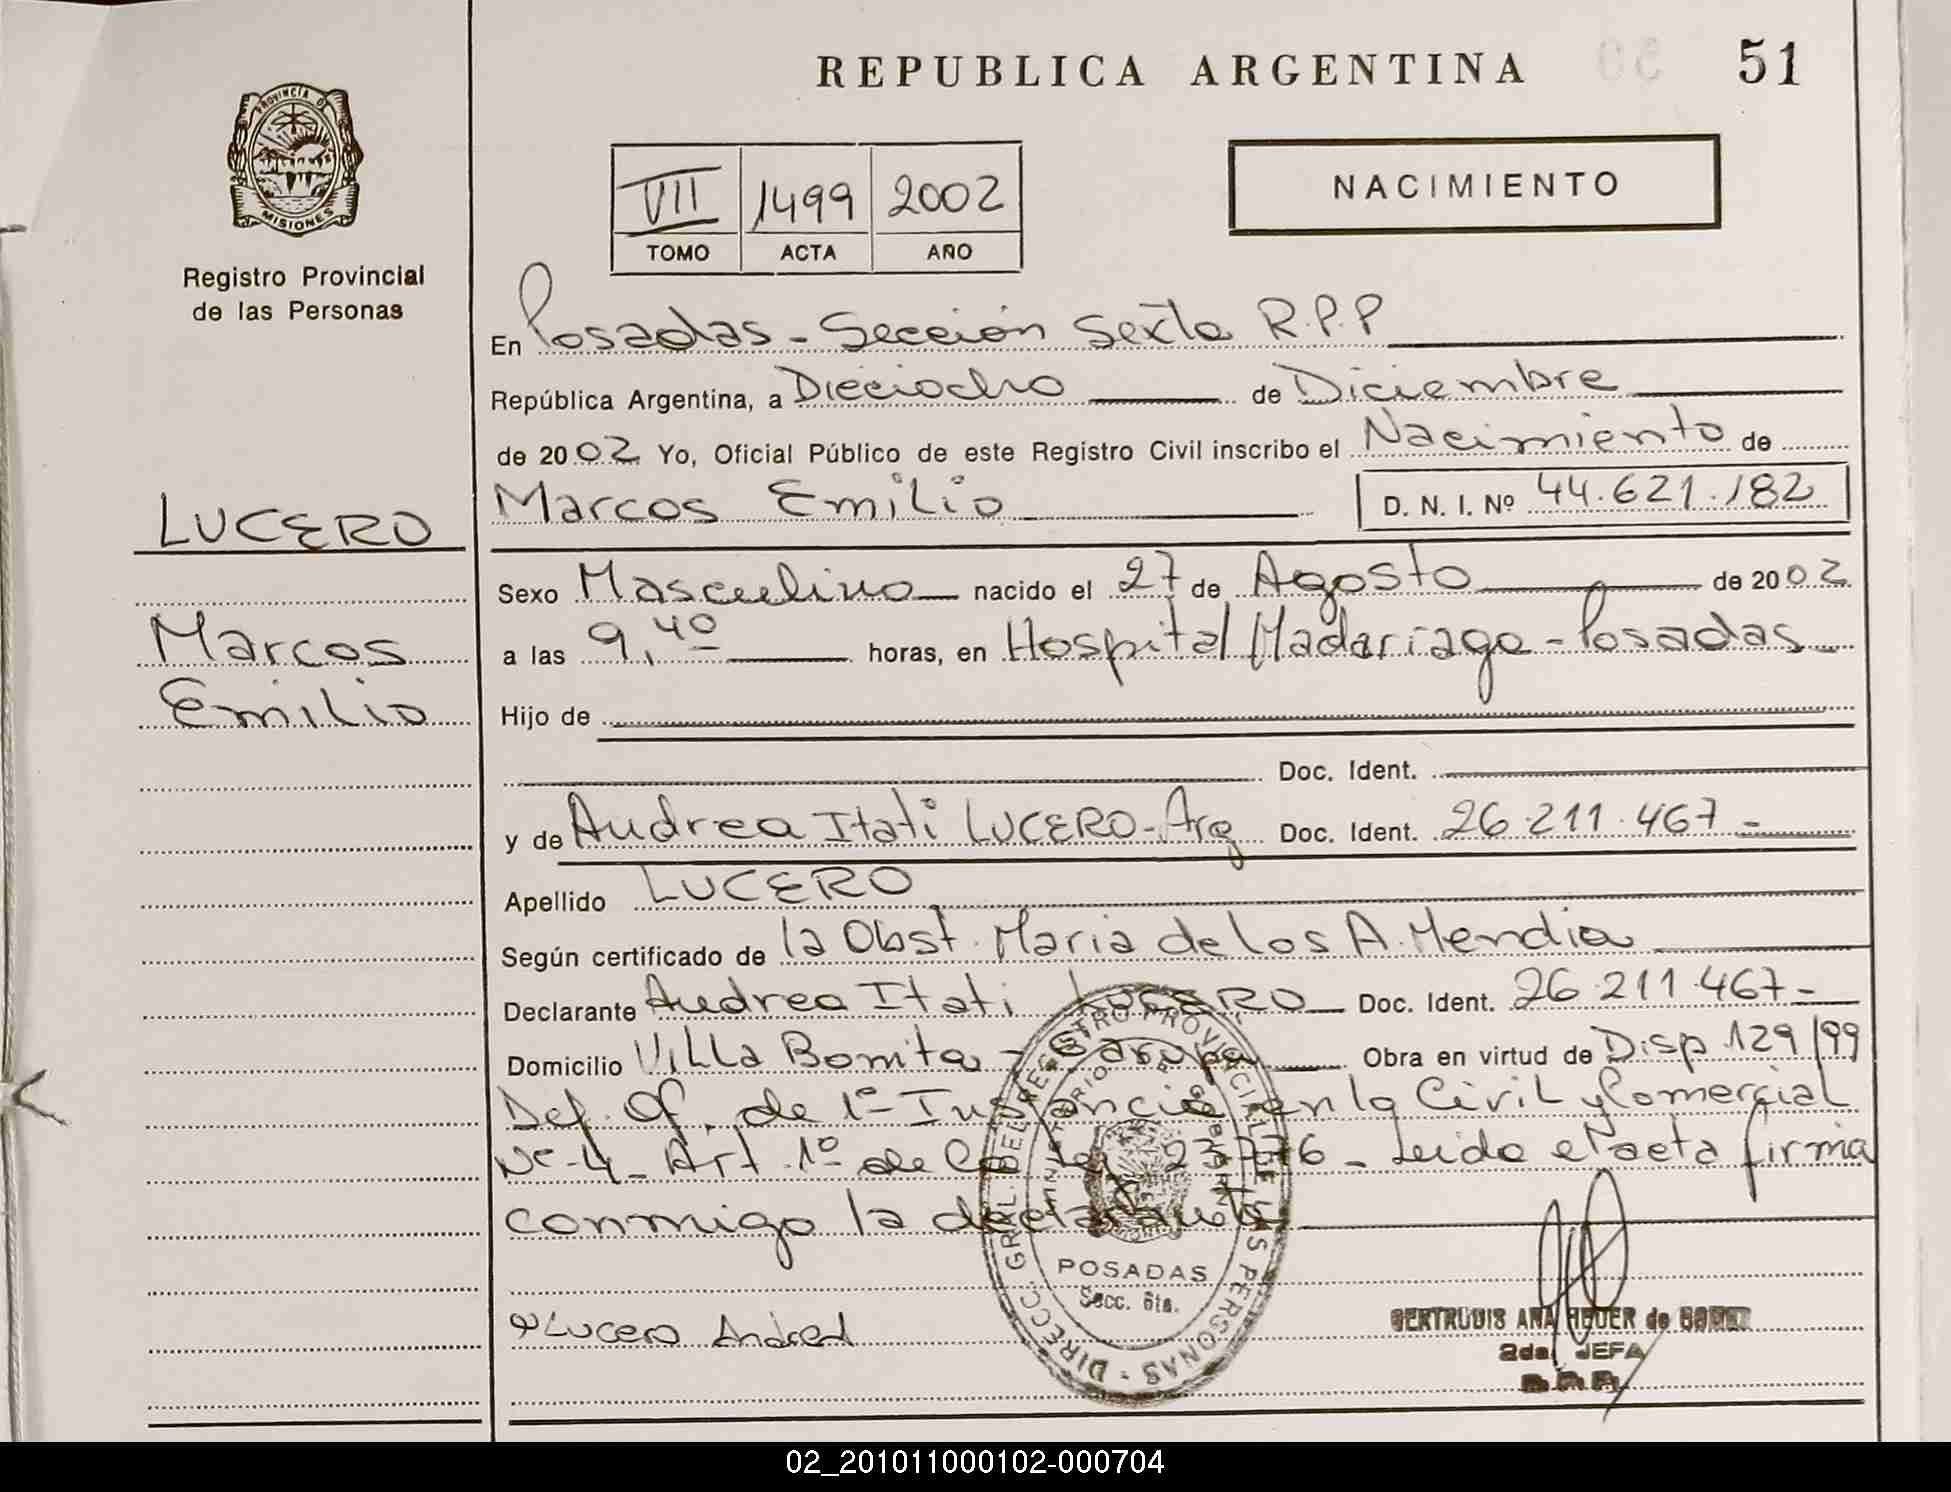 REPUBLICA ARGENTINA 51
PROVINCIA DE
MISIONES
Registro Provincial
de las Personas
VII 1499 2002
TOMO ACTA AÑO
NACIMIENTO
En Posadas - Sección Sexta R.P.P
República Argentina, a Dieciocho de Diciembre
de 2002 Yo, Oficial Público de este Registro Civil inscribo el Nacimiento de
Marcos Emilio D. N. I. Nº 44.621.182
LUCERO
Marcos
Emilio
Sexo Masculino nacido el 27 de Agosto de 2002
a las 9,40 horas, en Hospital Madariaga - Posadas
Hijo de
Doc. Ident.
y de Andrea Itati LUCERO - Arg Doc. Ident. 26.211.467 -
Apellido LUCERO
Según certificado de la Obst. Maria de los A. Mendia
Declarante Andrea Itati LUCERO Doc. Ident. 26.211.467 -
Domicilio Villa Bonita - Garupa Obra en virtud de Disp 129/99
Def. Of. de 1º Instancia en lo Civil y Comercial
Nº 4 - Art. 1º de la Ley 23776 - Leida el acta firma
conmigo la declarante
Lucero Andrea
DIRECC. GRAL. DEL REGISTRO PROVINCIAL DE LAS PERSONAS
MINISTERIO DE GOBIERNO
POSADAS
Secc. 6ta.
GERTRUDIS ANA HEUER de
2da. JEFA
R.P.P.
02_201011000102-000704